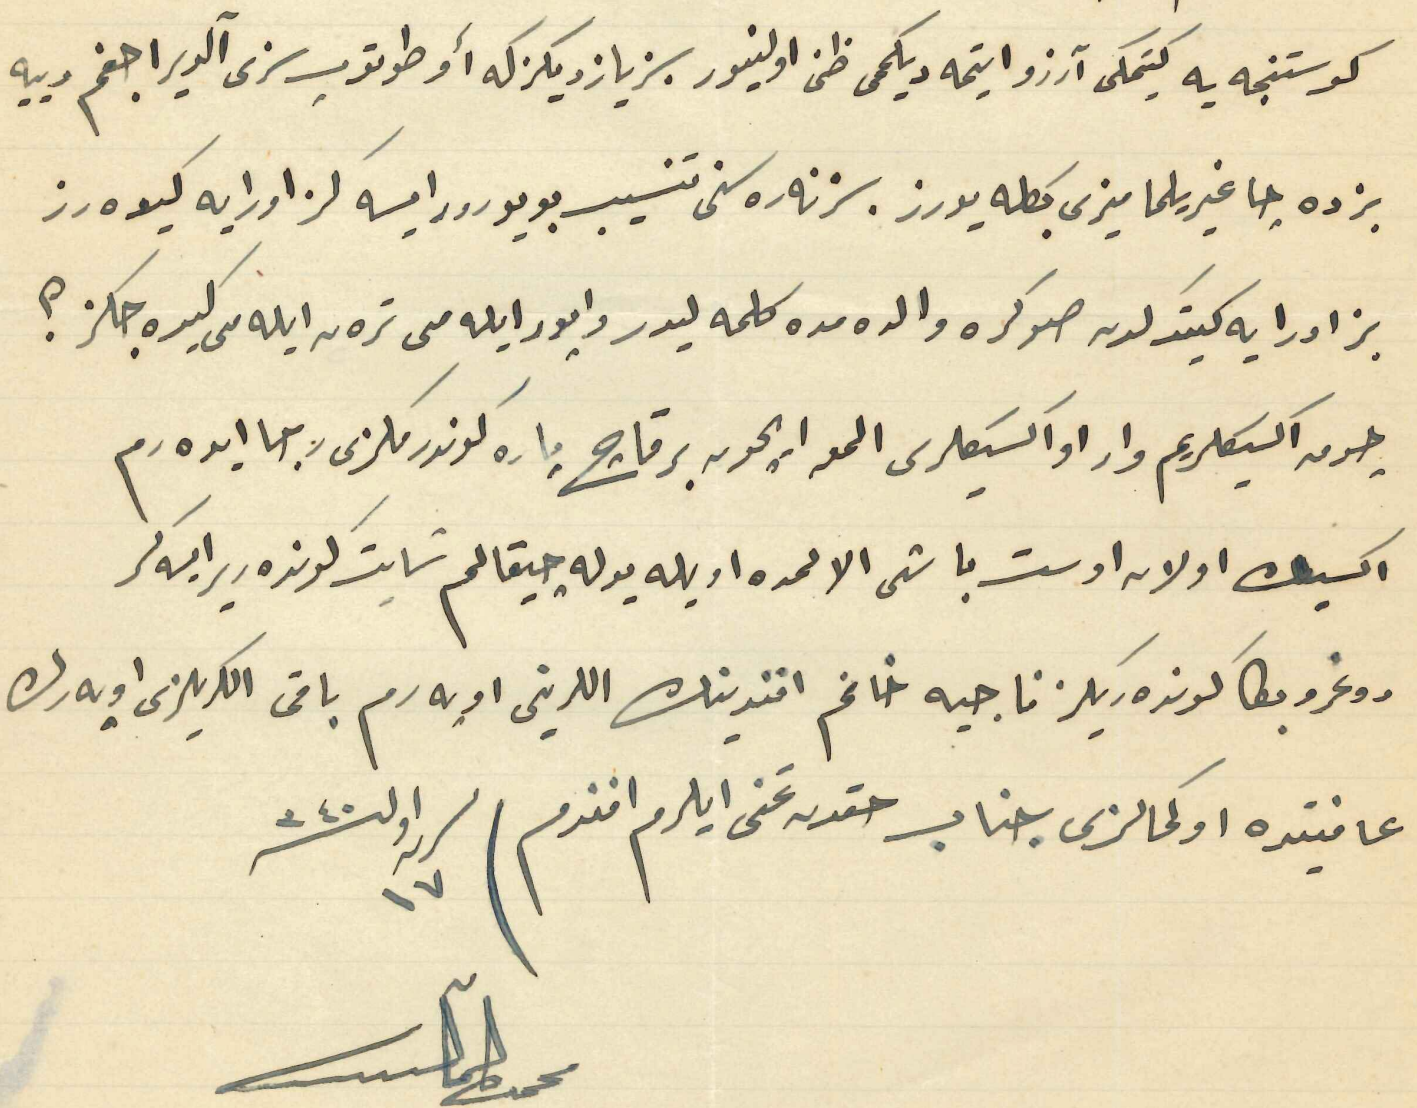 كوستنجه يه كيتمكى آرزو ايتمه ديكمى ظن اولنيور. سز يازديكزكه أو طوتوب سزى آلديراجغم دييه
بزده چاغيريلمامزى بكله يورز. سز نه ره سنى تنسيب بويورور ايسه كز اورايه كيده رز
بز اورايه كيتدكدن صوكره والده مده كلمه ليدر واپور ايله مى تره ن ايله مى كيده جكز؟
چوق اكسيكلريم وار او اكسيكلرى المق ايچون بر قاچ پاره كوندرمكزى رجا ايده رم
اكسيك اولان اوست باشى الالمده اويله يوله چيقالم شايت كونده رير ايسه كز
دوغرو بكا كونده ريكز ناجيه خانم افندينك اللرينى اوپه رم باقى اللريكزى اوپه رك
عافيتده اولمالرى جناب حقدن تمنى ايلرم افندم
١٧
محمد